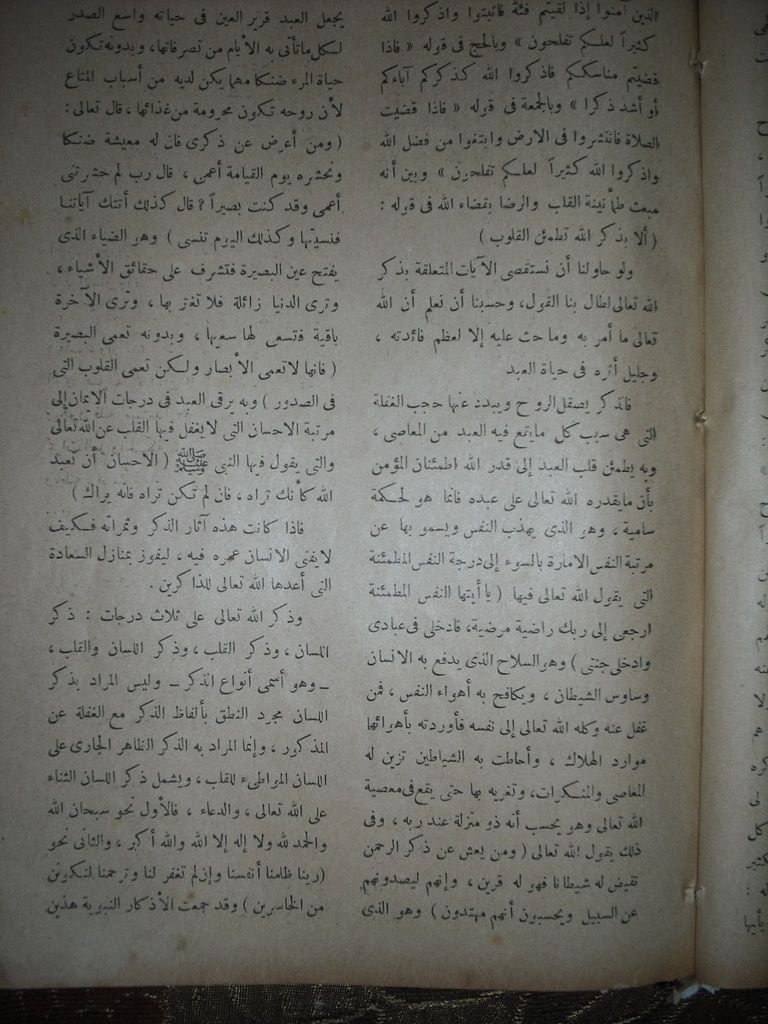 الذين آمنوا إذا لقيتم فئة فاثبتوا واذكروا الله
كثيراً لعلكم تفلحون » وبالحج فى قوله « فاذا
قضيتم مناسككم فاذكروا الله كذكركم آباءكم
أو أشد ذكرا » وبالجمعة فى قوله « فاذا قضيت
الصلاة فانتشروا فى الارض وابتغوا من فضل الله
واذكروا الله كثيراً لعلكم تفلحون » وبين أنه
مبعث طمأنينة القلب والرضا بقضاء الله فى قوله :
( ألا بذكر الله تطمئن القلوب )
ولو حاولنا أن نستقصى الآيات المتعلقة بذكر
الله تعالى لطال بنا القول، وحسبنا أن نعلم أن الله
تعالى ما أمر به وما حث عليه إلا لعظم فائدته ،
وجليل أثره فى حياة العبد
فالذكر يصقل الروح ويبدد عنها حجب الغفلة
التى هى سبب كل مايقع فيه العبد من المعاصى ،
وبه يطمئن قلب العبد إلى قدر الله اطمئنان المؤمن
بأن مايقدره الله تعالى على عبده فانما هو لحكمة
سامية ، وهو الذى يهذب النفس ويسمو بها عن
مرتبة النفس الامارة بالسوء إلى درجة النفس المطمئنة
التى يقول الله تعالى فيها ( يا أيتها النفس المطمئنة
ارجعى إلى ربك راضية مرضية، فادخلى فى عبادى
وادخلى جنتى ) وهو السلاح الذى يدفع به الانسان
وساوس الشيطان ، ويكافح به أهواء النفس ، فمن
غفل عنه وكله الله تعالى إلى نفسه فأوردته بأهوائها
موارد الهلاك ، وأحاطت به الشياطين تزين له
المعاصى والمنكرات، وتغريه بها حتى يقع فى معصية
الله تعالى وهو يحسب أنه ذو منزلة عند ربه ، وفى
ذلك يقول الله تعالى ( ومن يعش عن ذكر الرحمن
نقيض له شيطانا فهو له قرين ، وإنهم ليصدونهم
عن السبيل ويحسبون أنهم مهتدون ) وهو الذى
يجعل العبد قرير العين فى حياته واسع الصدر
لكل ماتأتى به الأيام من تصرفاتها، وبدونه تكون
حياة المرء ضنكا مهما يكن لديه من أسباب المتاع
لأن روحه تكون محرومة من غذائها ، قال تعالى :
( ومن أعرض عن ذكرى فان له معيشة ضنكا
ونحشره يوم القيامة أعمى ، قال رب لم حشرتنى
أعمى وقد كنت بصيراً ؟ قال كذلك أتتك آياتنا
فنسيتها وكذلك اليوم تنسى ) وهو الضياء الذى
يفتح عين البصيرة فتشرف على حقائق الأشياء ،
وترى الدنيا زائلة فلا تغتر بها ، وترى الآخرة
باقية فتسعى لها سعيها ، وبدونه تعمى البصيرة
( فانها لا تعمى الأبصار ولكن تعمى القلوب التى
فى الصدور ) وبه يرقى العبد فى درجات الايمان إلى
مرتبة الاحسان التى لا يغفل فيها القلب عن الله تعالى
والتى يقول فيها النبى ﷺ ( الاحسان أن تعبد
الله كأنك تراه ، فان لم تكن تراه فانه يراك )
فاذا كانت هذه آثار الذكر وثمراته فكيف
لا يفنى الانسان عمره فيه ، ليفوز بمنازل السعادة
التى أعدها الله تعالى للذاكرين .
وذكر الله تعالى على ثلاث درجات : ذكر
اللسان ، وذكر القلب ، وذكر اللسان والقلب ،
ــ وهو أسمى أنواع الذكر ــ وليس المراد بذكر
اللسان مجرد النطق بألفاظ الذكر مع الغفلة عن
المذكور ، وإنما المراد به الذكر الظاهر الجارى على
اللسان المواطىء للقلب، ويشمل ذكر اللسان الثناء
على الله تعالى ، والدعاء ، فالأول نحو سبحان الله
والحمد لله ولا إله إلا الله والله أكبر ، والثانى نحو
( ربنا ظلمنا أنفسنا وإن لم تغفر لنا وترحمنا لنكونن
من الخاسرين ) وقد جمعت الأذكار النبوية هذين